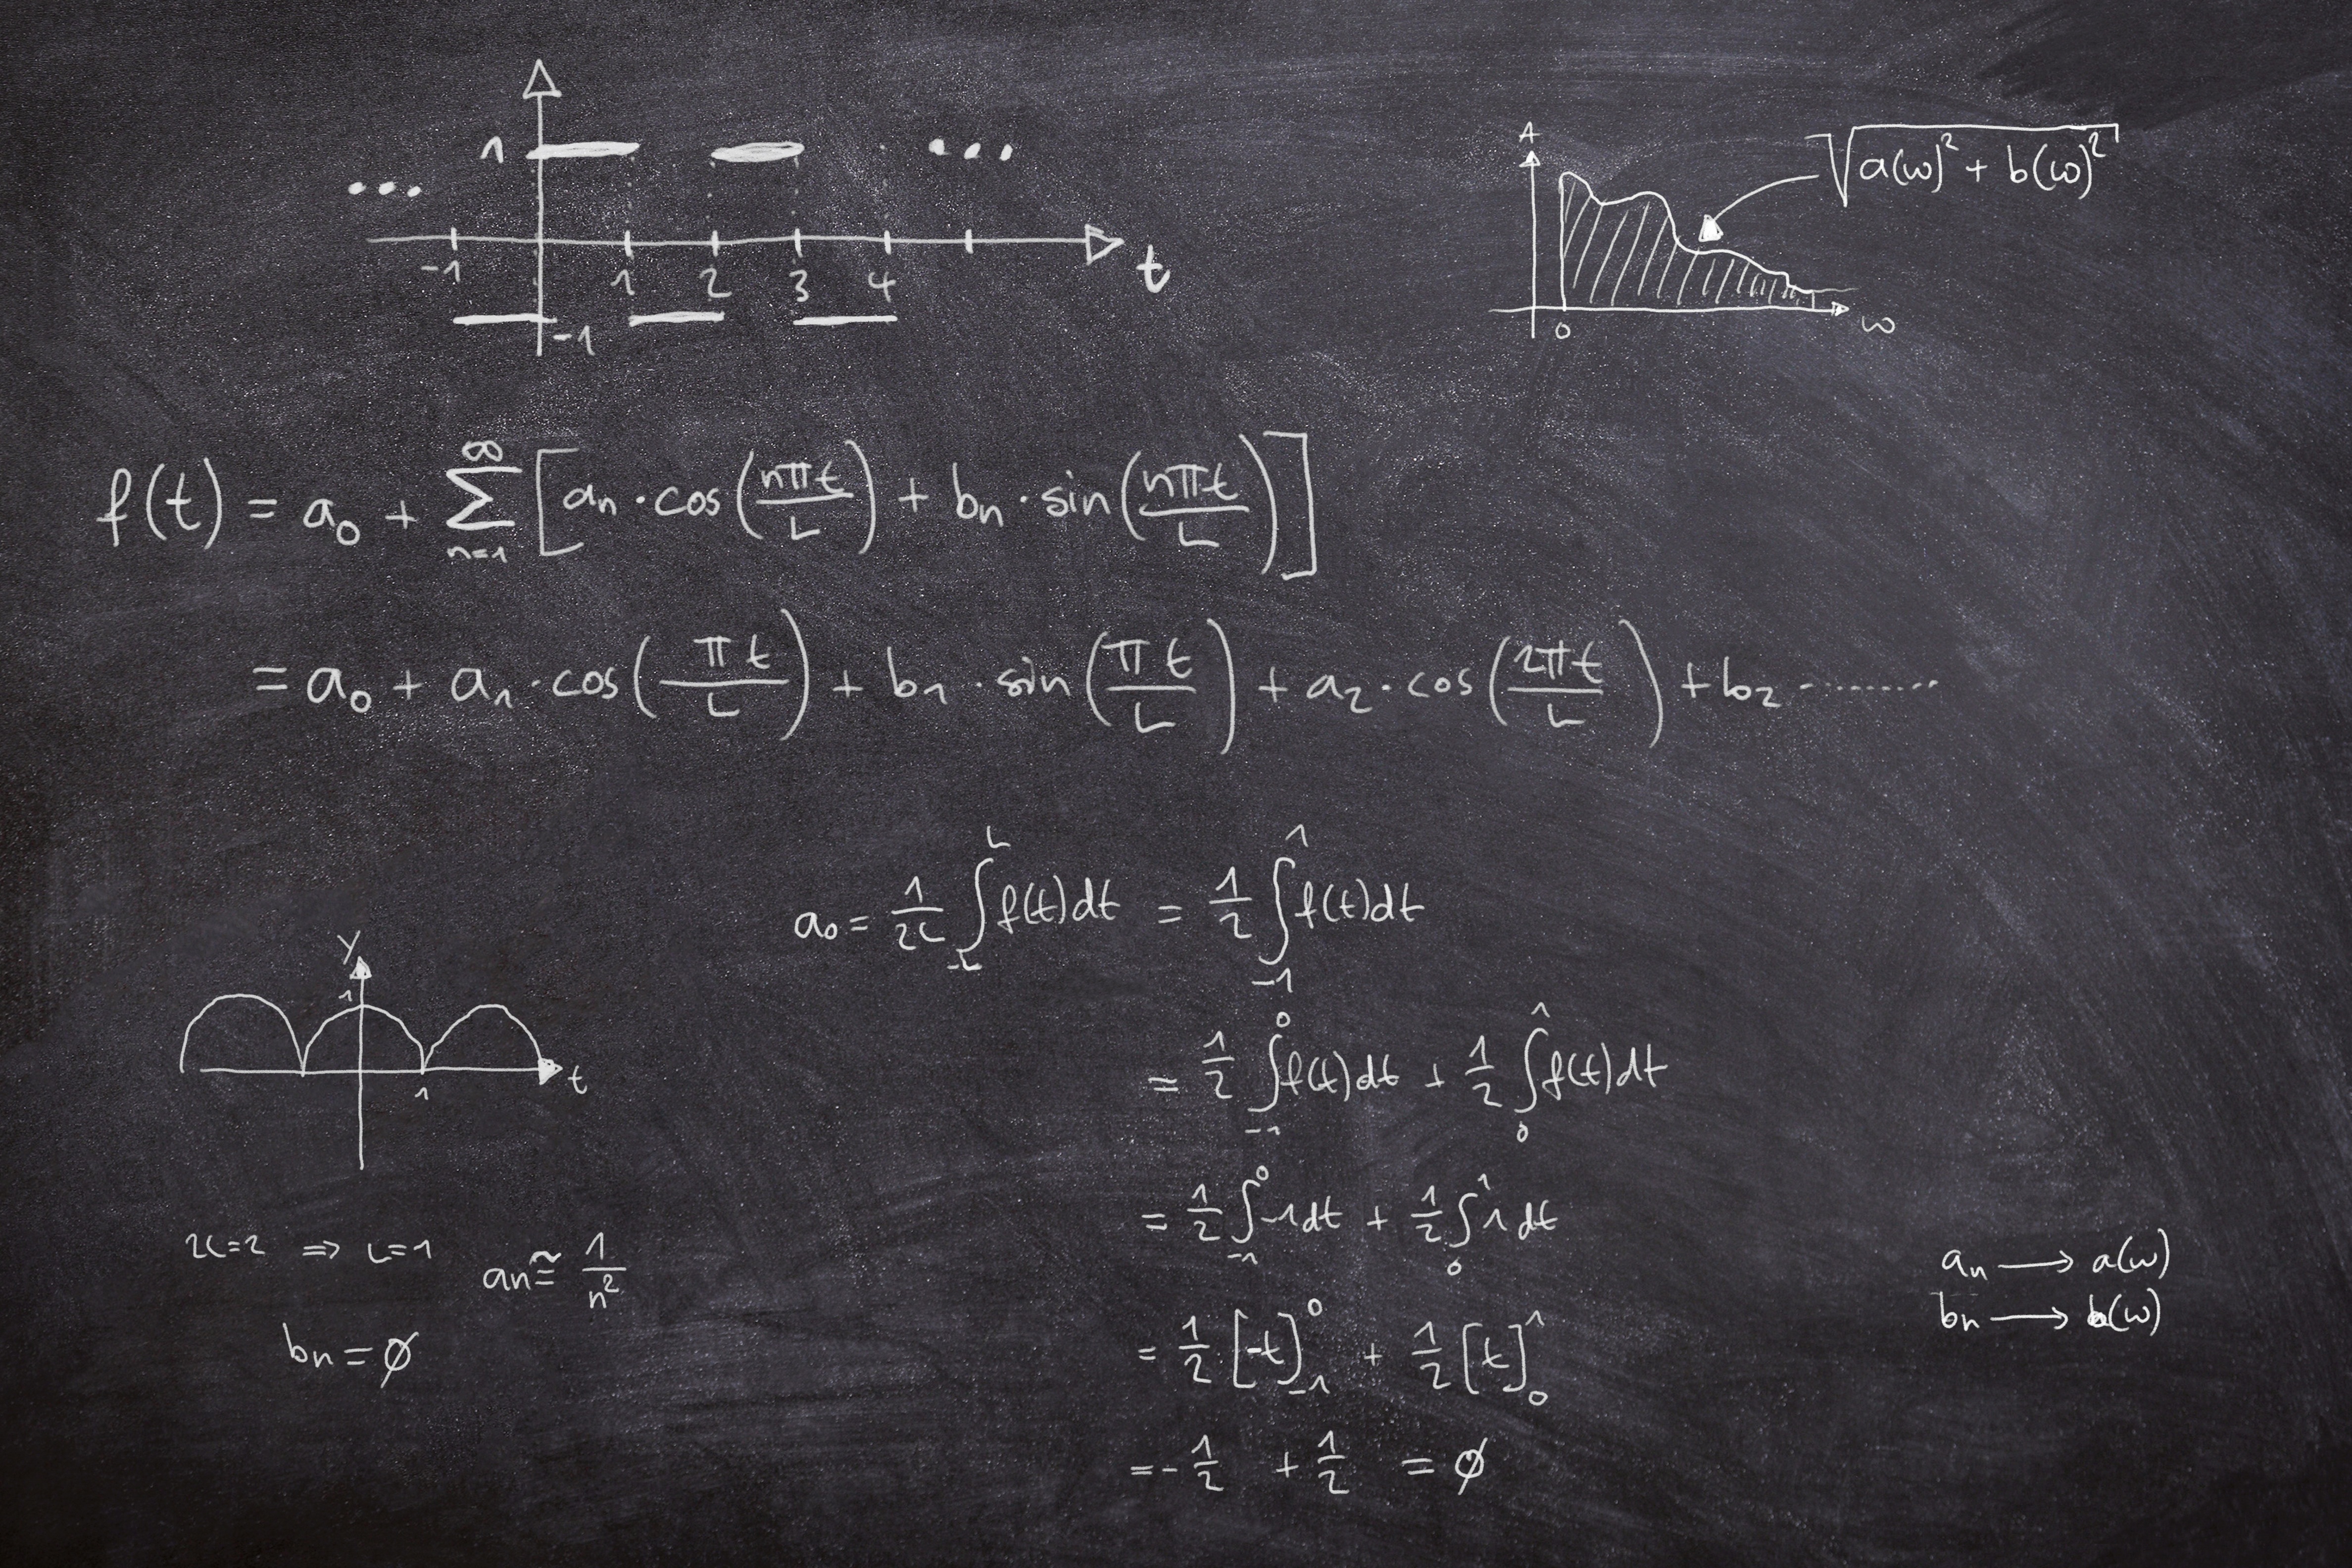 1
-1 1 2 3 4 t
-1
A
√(a(ω)² + b(ω)²)
0 ω
f(t) = a₀ + ∑ₙ₌₁^∞ [aₙ · cos(nπt/L) + bₙ · sin(nπt/L)]
= a₀ + a₁ · cos(πt/L) + b₁ · sin(πt/L) + a₂ · cos(2πt/L) + b₂ ·········
a₀ = 1/2L ∫₋L^L f(t)dt = 1/2 ∫₋₁^1 f(t)dt
= 1/2 ∫₋₁^0 f(t)dt + 1/2 ∫₀^1 f(t)dt
= 1/2 ∫₋₁^0 -1dt + 1/2 ∫₀^1 1dt
= 1/2 [-t]₋₁^0 + 1/2 [t]₀^1
= -1/2 + 1/2 = ∅
y
1
1 t
2L=2 ⇒ L=1 aₙ ≅ 1/n²
bₙ = ∅
aₙ → a(ω)
bₙ → b(ω)